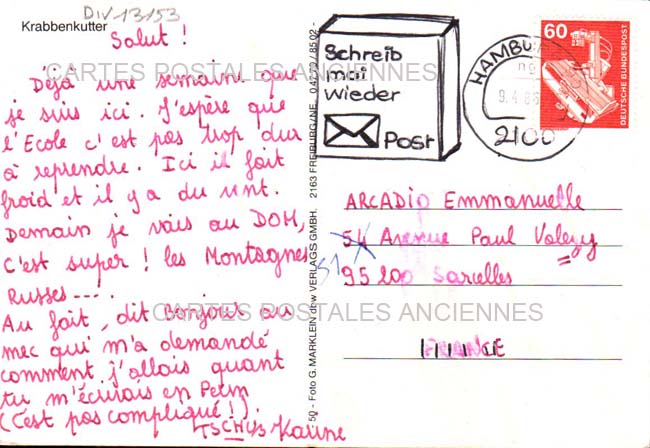 DIV 13153
Krabbenkutter
Salut !
Déjà une semaine que
je suis ici. J'espère que
l'Ecole c'est pas trop dur
à reprendre. Ici il fait
froid et il y a du vent.
Demain je vais au DOM,
C'est super ! les Montagnes
Russes ----.
Au fait, dit Bonjour au
mec qui m'a demandé
comment j'allais quant
tu m'écrivais en Perm
(C'est pas compliqué !).
TSCHÜS Karine
CARTES POSTALES ANCIENNES
CARTES POSTALES ANCIENNES
50 - Foto G. MARKLEIN dgw VERLAGS GMBH. 2163 FREIBURG/NE.
Schreib
mal
wieder
Post
HAMBU
9.4.8
2100
60
DEUTSCHE BUNDESPOST
ARCADIO Emmanuelle
54 Avenue Paul Valery
51
95200 Sarcelles
FRANCE